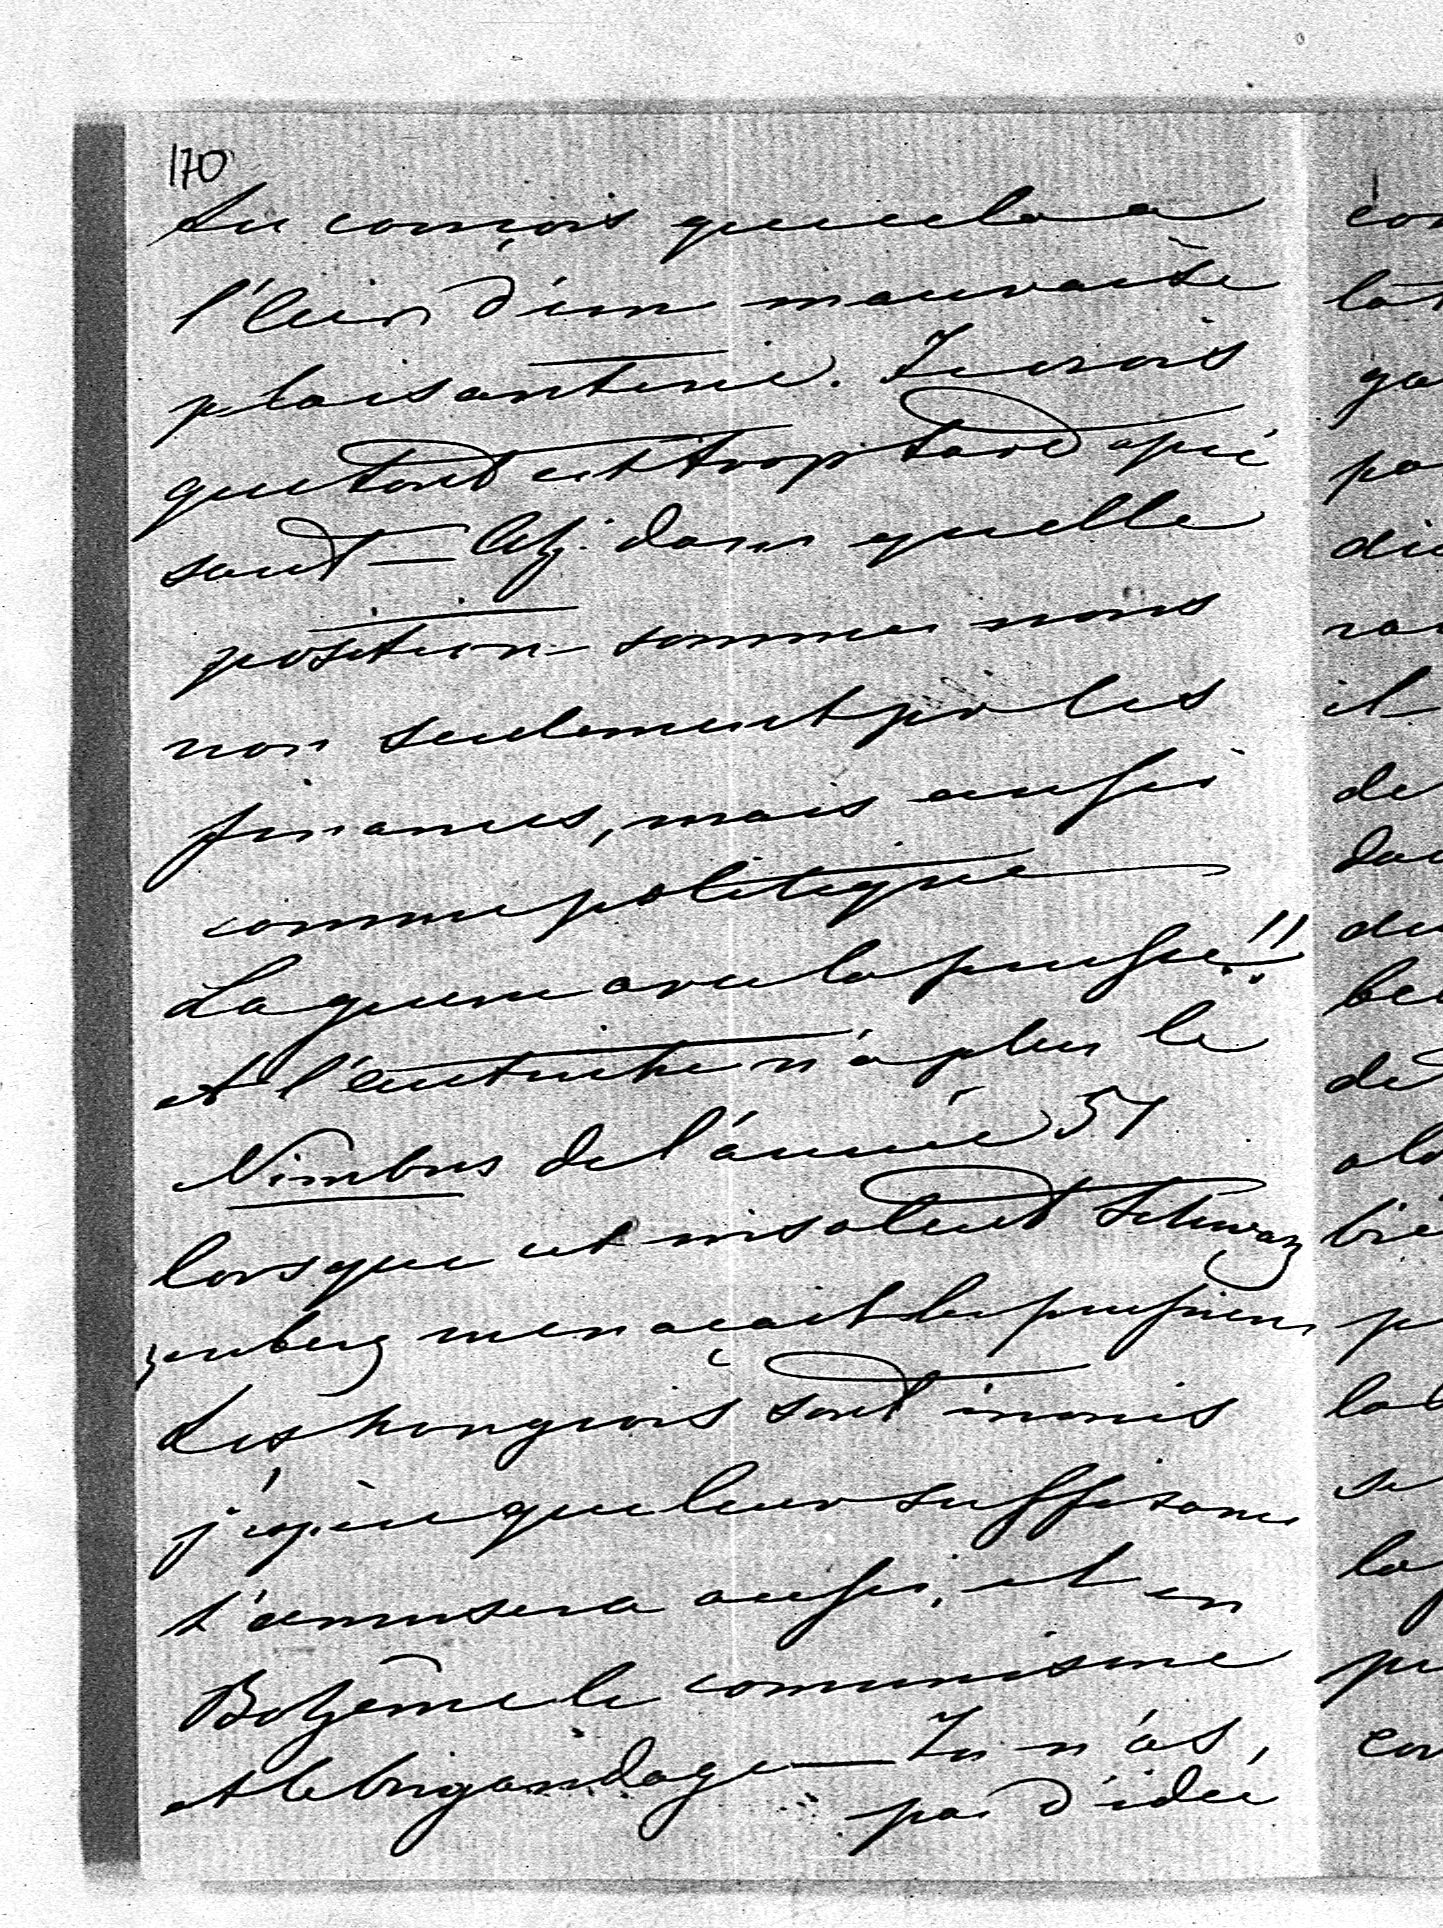 170
tu conçois que cela a
l'air d'une mauvaise
plaisanterie. Je crois
que tout est trop tard à present
sent — Ah! dans quelle
position sommes nous
non seulement pr les
finances, mais aussi
comme politique
La guerre avec la prusse!!
et l'autriche n'a plus le
Nimbus de l'année 51
lorsque cet insolent Schwar
zenberg menaçait les prussiens
Les hongrois sont inouis
j'espère que leur suffisance
t'amusera aussi, et en
Bohême le comunisme
et le brigandage — Tu n'as,
pas d'idée